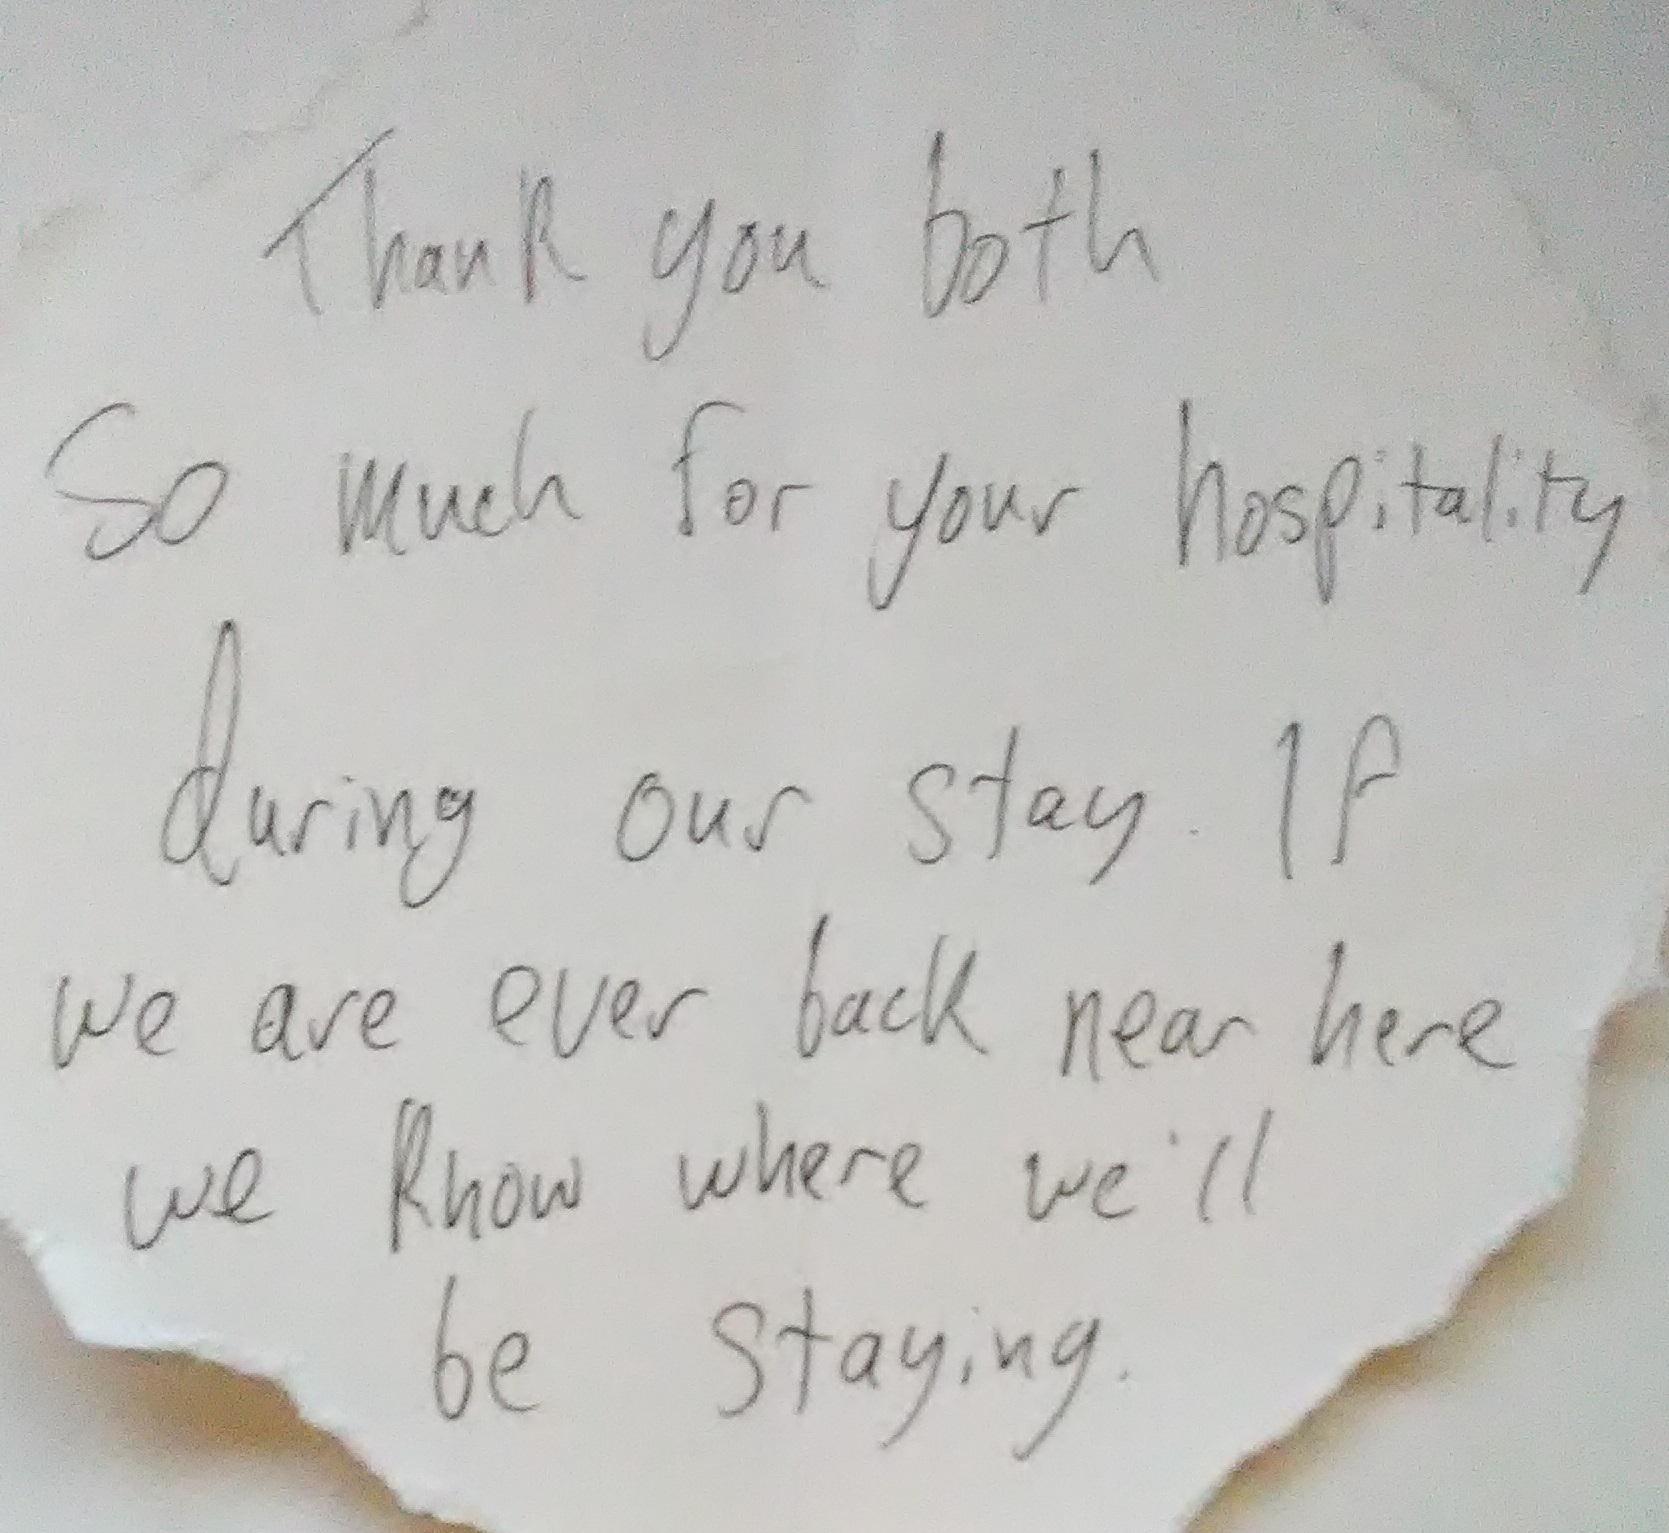 Thank you both
So much for your hospitality
during our stay. If
we are ever back near here
we know where we'll
be staying.